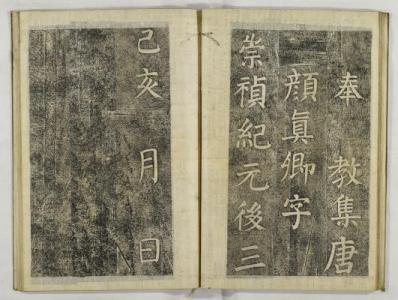 奉　教集唐
顔眞卿字
崇禎紀元後三
己亥　月　日